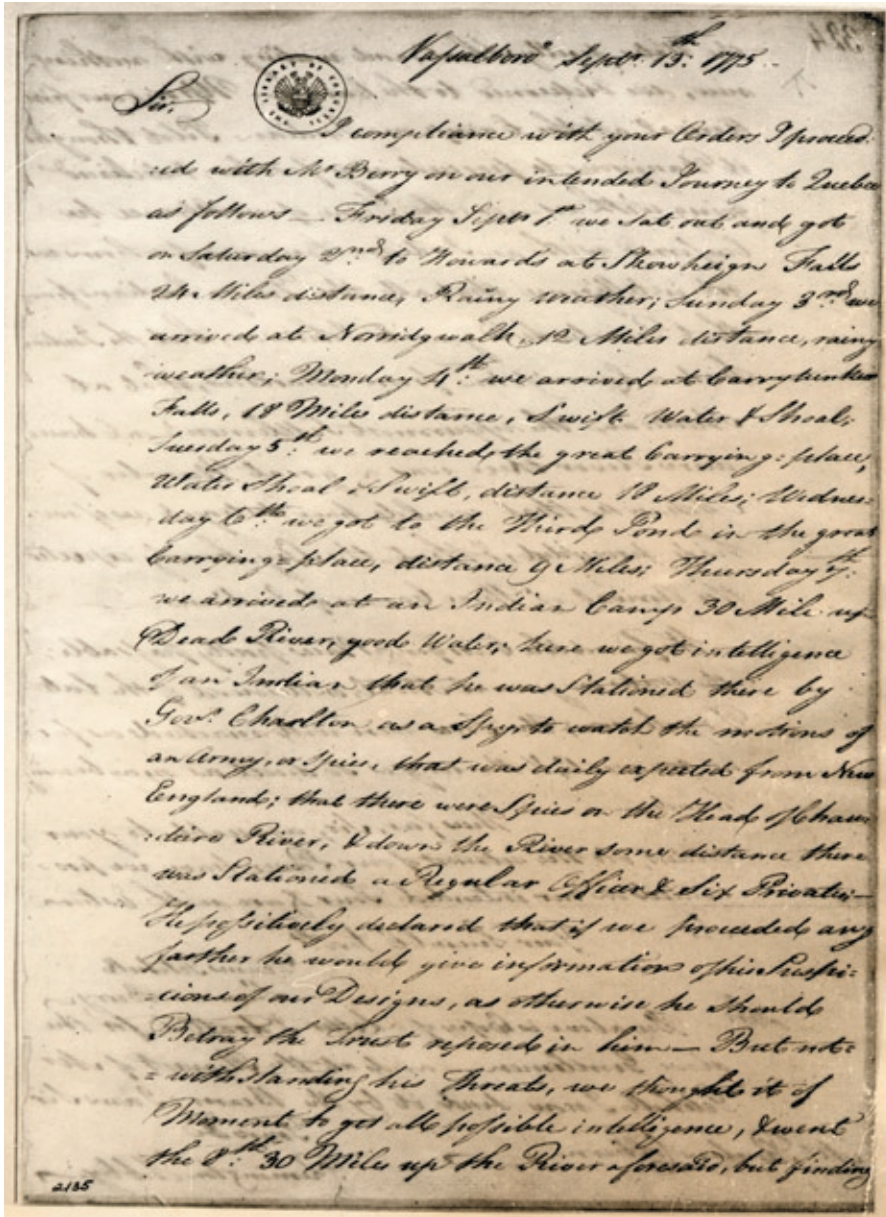 Vassalboro' Septr. 13th. 1775.
Sir,
THE LIBRARY OF CONGRESS
I compliance with your Orders I proceed
:ed with Mr Berry on our intended Journey to Quebec
as follows — Friday Septr 1st we sat out and got
on Saturday 2nd to Howards at Skowheign Falls
24 Miles distance, Rainy weather; Sunday 3rd we
arrived at Norridgwalk, 12 Miles distance, rainy
weather; Monday 4th: we arrived at Carrytunkus
Falls, 18 Miles distance, Swift Water & Shoal;
Tuesday 5th: we reached the great Carrying:place,
Water Shoal & Swift, distance 18 Miles; Wednes:
day 6th: we got to the Third Pond in the great
Carrying=place, distance 9 Miles; Thursday 7th:
we arrived at an Indian Camp 30 Mile up
Dead River, good Water; here we got intelligence
of an Indian that he was Stationed there by
Govr. Charlton as a Spy to watch the motions of
an Army, or Spies, that was daily expected from New
England; that there were Spies on the Head of Chau
:diere River, & down the River some distance there
was Stationed a Regular Officer & Six Privates—
He possitively declared that if we proceeded any
farther he would give information of his Suspi:
:cions of our Designs, as otherwise he should
Betray the Trust reposed in him — But not=
=withstanding his threats, we thought it of
Moment to get all possible intelligence, & went
the 8th: 30 Miles up the River aforesaid, but finding
2135